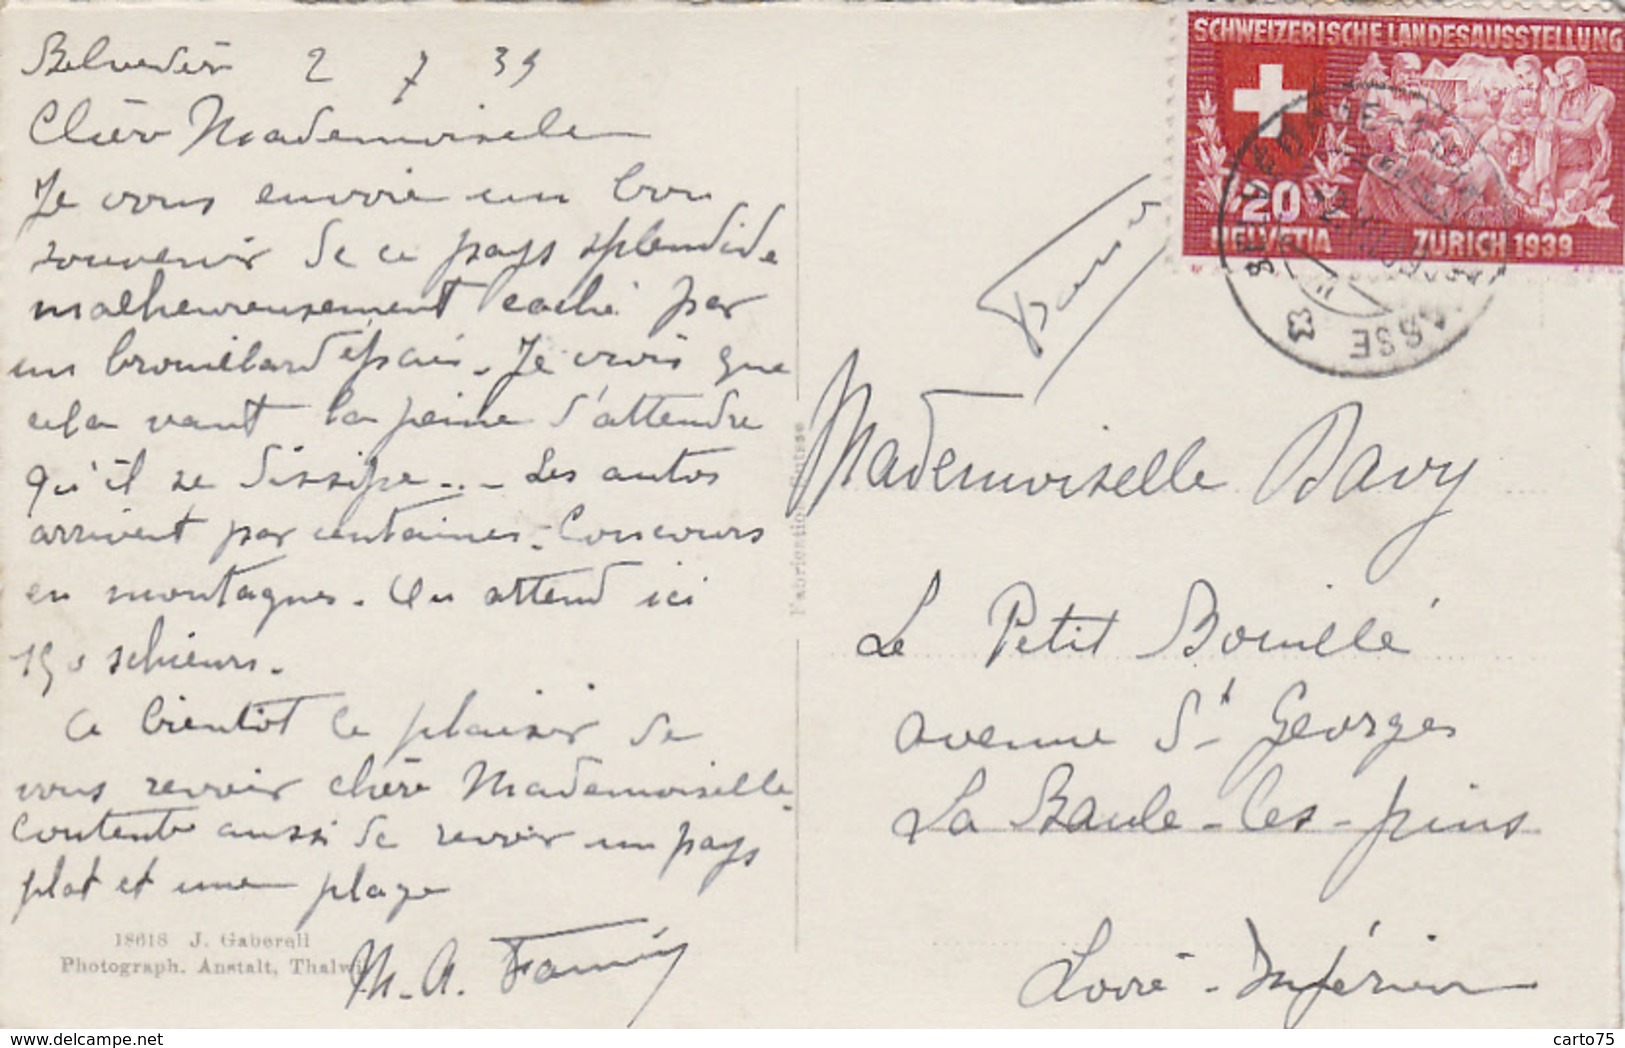 Belvédère 2 7 39
Chère Mademoiselle
Je vous envoie un bon
souvenir de ce pays splendide
malheureusement caché par
un brouillard épais. Je crois que
cela vaut la peine d'attendre
qu'il se dissipe... Les autos
arrivent par centaines. Concours
en montagnes. On attend ici
150 skieurs.
A bientôt le plaisir de
vous revoir chère Mademoiselle
contente aussi de revoir un pays
plat et une plage
M. A.
18618 J. Gaberell
Photograph. Anstalt, Thalwil
Fabrication Suisse
SCHWEIZERISCHE LANDESAUSSTELLUNG
20
HELVETIA ZÜRICH 1939
Mademoiselle Bavy
Le Petit Bouillé
avenue St Georges
La Baule-les-pins
Loire-Inférieure
carto75